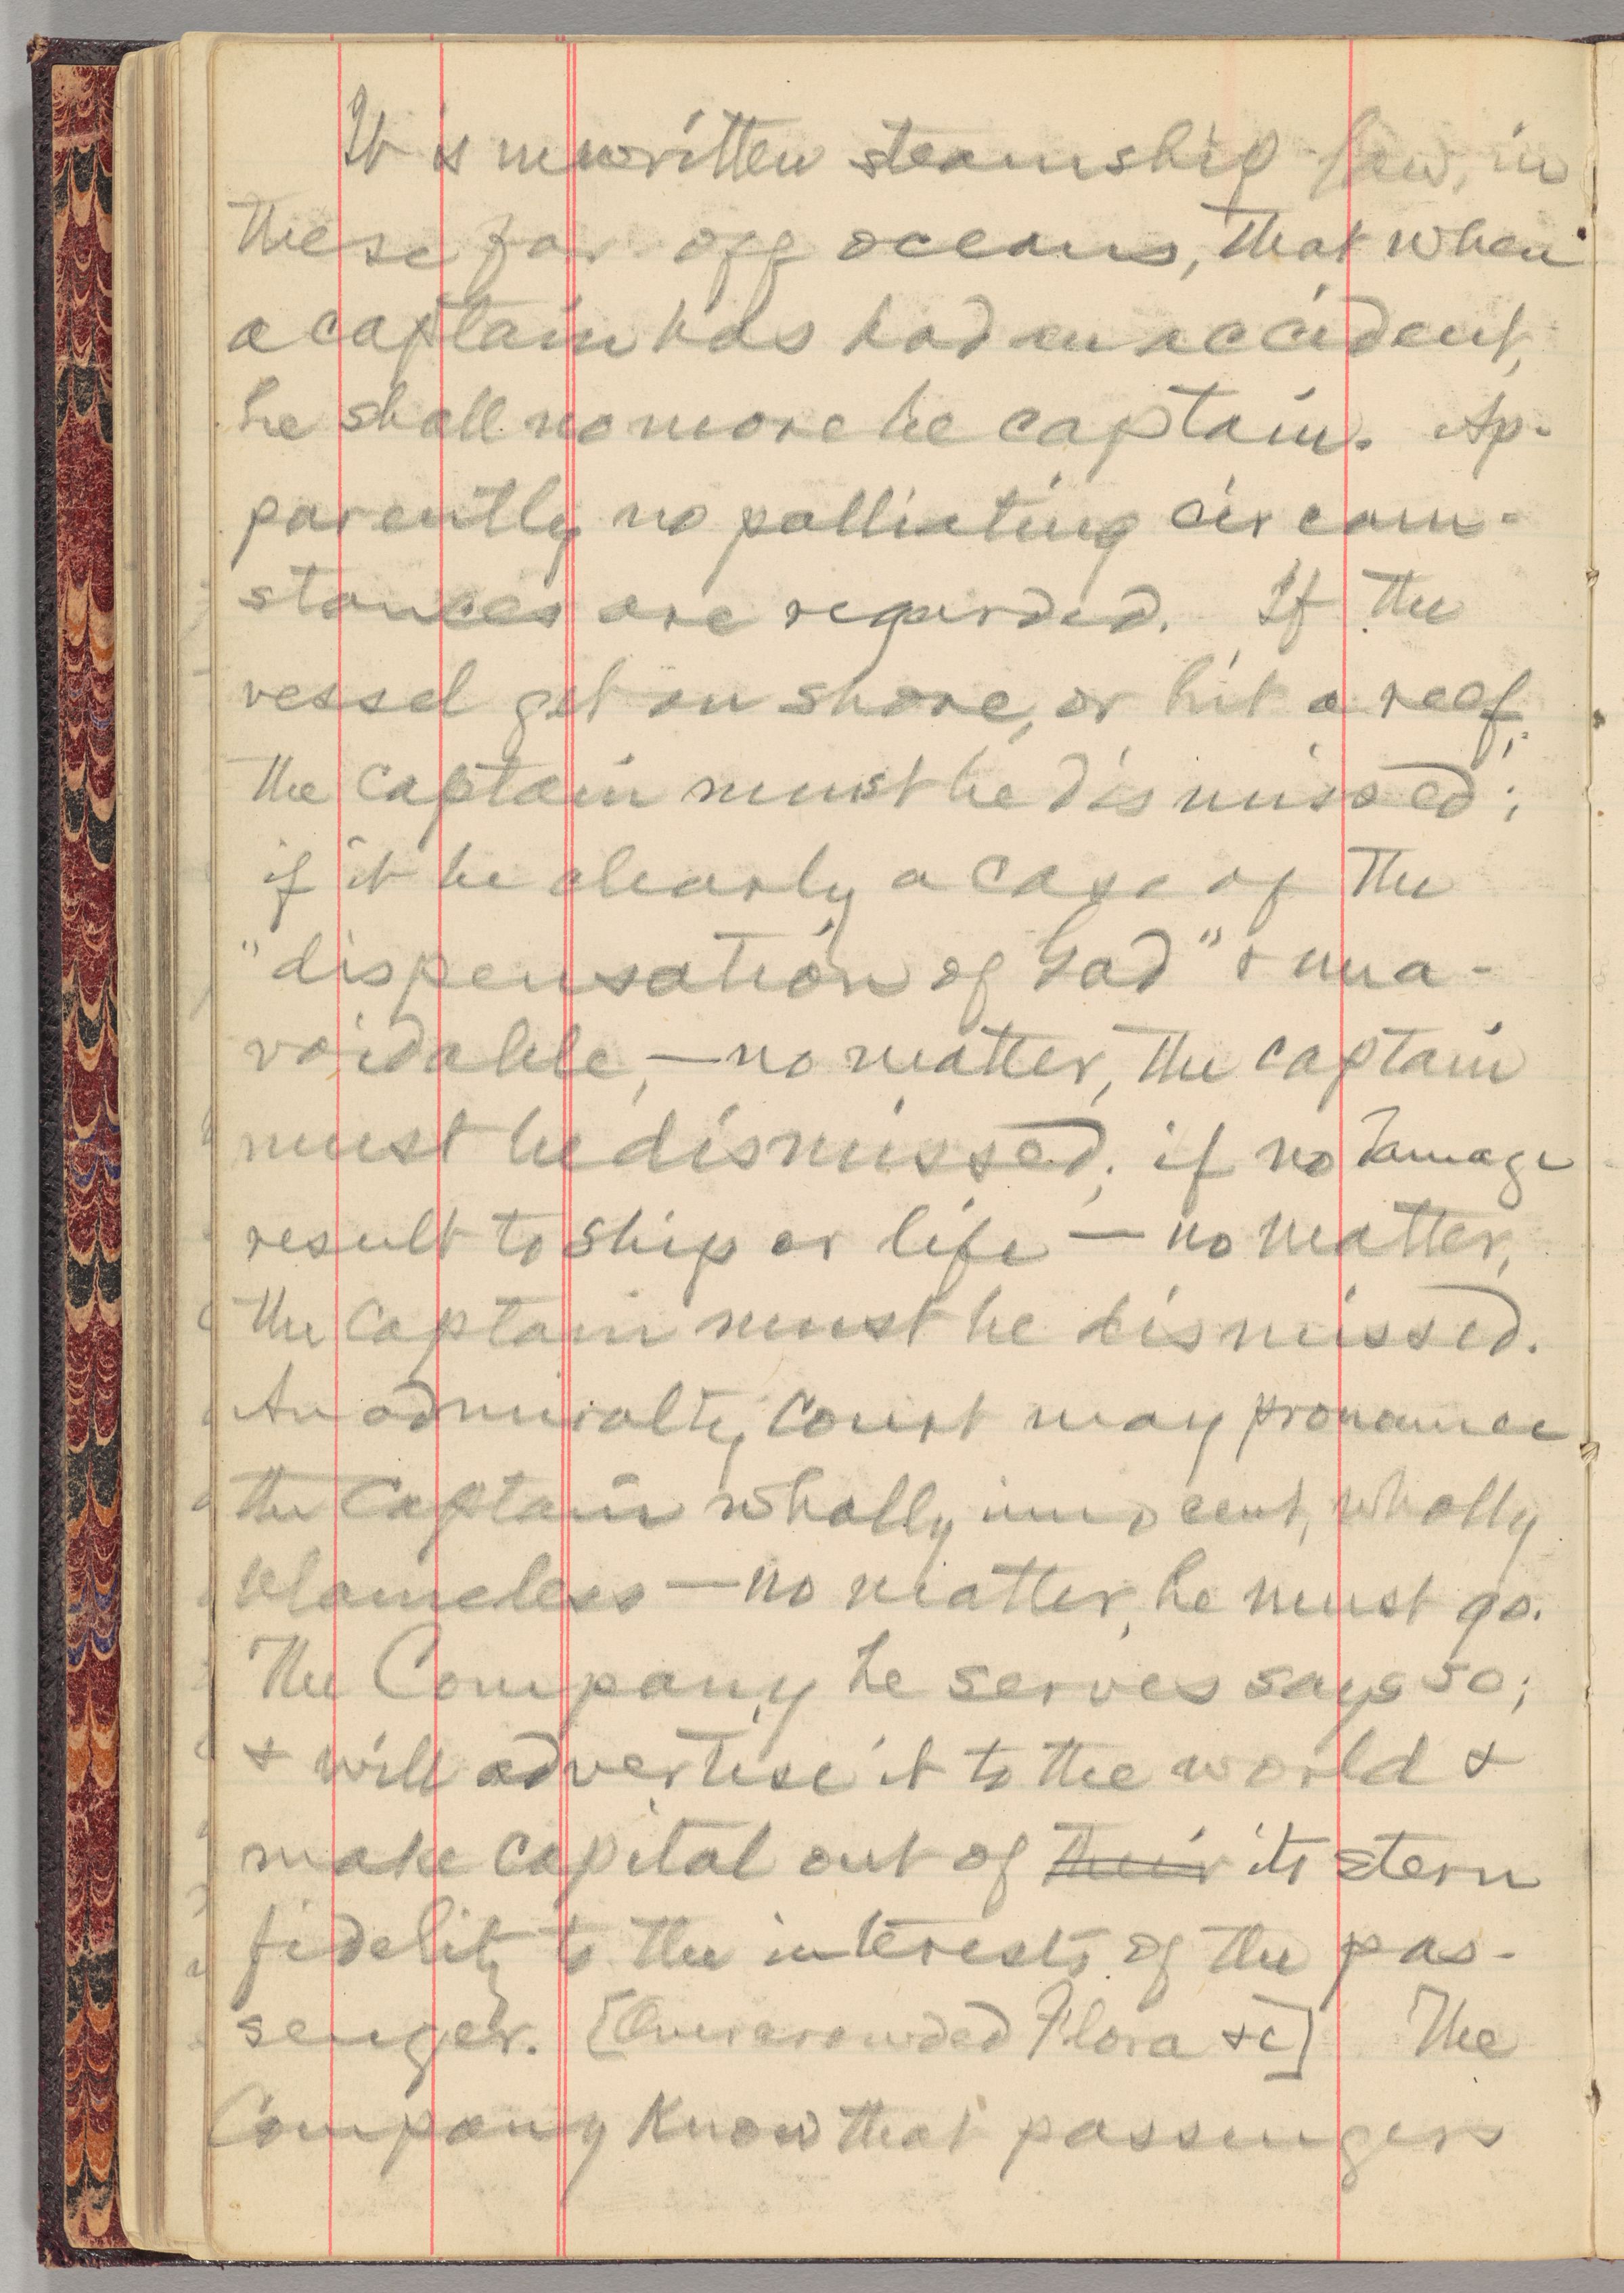 It is unwritten steamship law, in
these far off oceans, that when
a captain has had an accident,
he shall no more be captain. Ap-
parently no palliating circum-
stances are regarded. If the
vessel get on shore, or hit a reef,
the captain must be dismissed;
if it be clearly a case of the
"dispensation of God" & una-
voidable, — no matter, the captain
must be dismissed; if no damage
result to ship or life — no matter,
the captain must be dismissed.
An admiralty court may pronounce
the captain wholly innocent, wholly
blameless — no matter, he must go.
The Company he serves says so;
& will advertise it to the world &
make capital out of their its stern
fidelity to the interests of the pas-
senger. [Overcrowded Flora &c] The
Company know that passengers